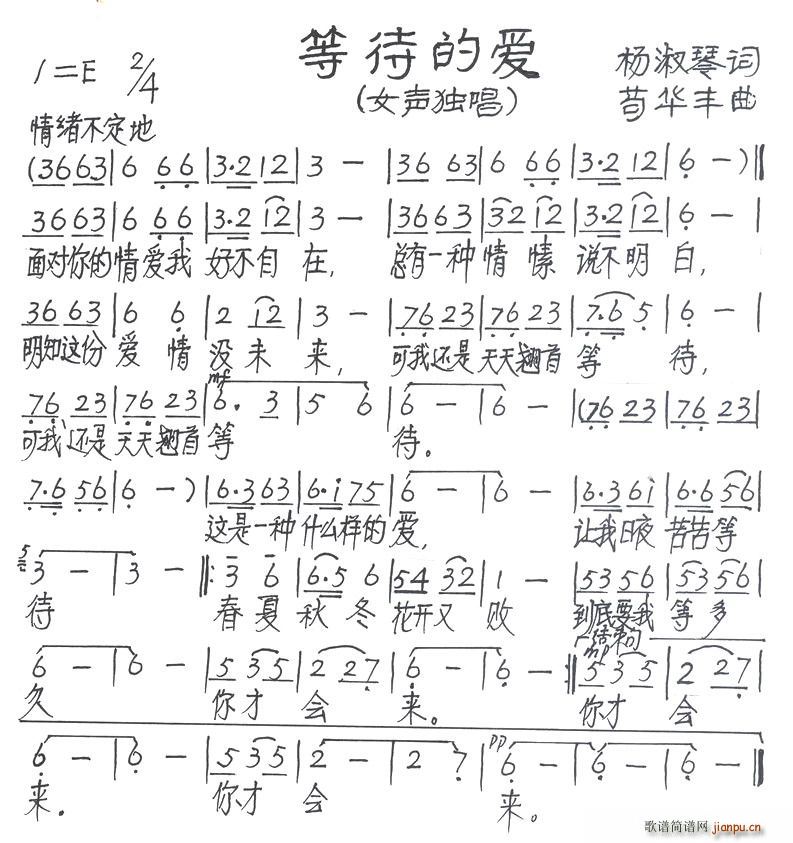 等待的爱
1=E 2/4
(女声独唱)
杨淑琴词
苟华丰曲
情绪不定地
(36 63 | 6 66 | 3·2 12 | 3 — | 36 63 | 6 66 | 3·2 12 | 6 — )‖
36 63 | 6 66 | 3·2 12 | 3 — | 36 63 | 32 12 | 3·2 12 | 6 — |
面对你的情爱我 好不自在, 总有一种情愫 说不明白,
36 63 | 6 6 | 2 12 | 3 — | 76 23 | 76 23 | 7·6 5 | 6 — |
明知这份 爱情没未来, 可我还是天天翘首等待,
mf
76 23 | 76 23 | 6· 3 | 5 6 | 6 — | 6 — | (76 23 | 76 23 |
可我还是天天翘首等 待。
7·6 56 | 6 — ) | 6·3 63 | 6·i 75 | 6 — | 6 — | 6·3 6i | 6·6 56 |
这是一种 什么样的爱, 让我日夜 苦苦等
5 3 — | 3 — ‖: 3 6 | 6·5 6 | 54 32 | 1 — | 53 56 | 53 56 |
待 春夏秋冬 花开又败 到底要我 等多
结束句
mp
6 — | 6 — | 5 35 | 2 27 | 6 — | 6 — :‖ 5 35 | 2 27 |
久 你才会来。 你才会
pp
6 — | 6 — | 5 35 | 2 — | 2 7 | 6 — | 6 — | 6 — ‖
来。 你才会 来。
歌谱简谱网
jianpu.cn